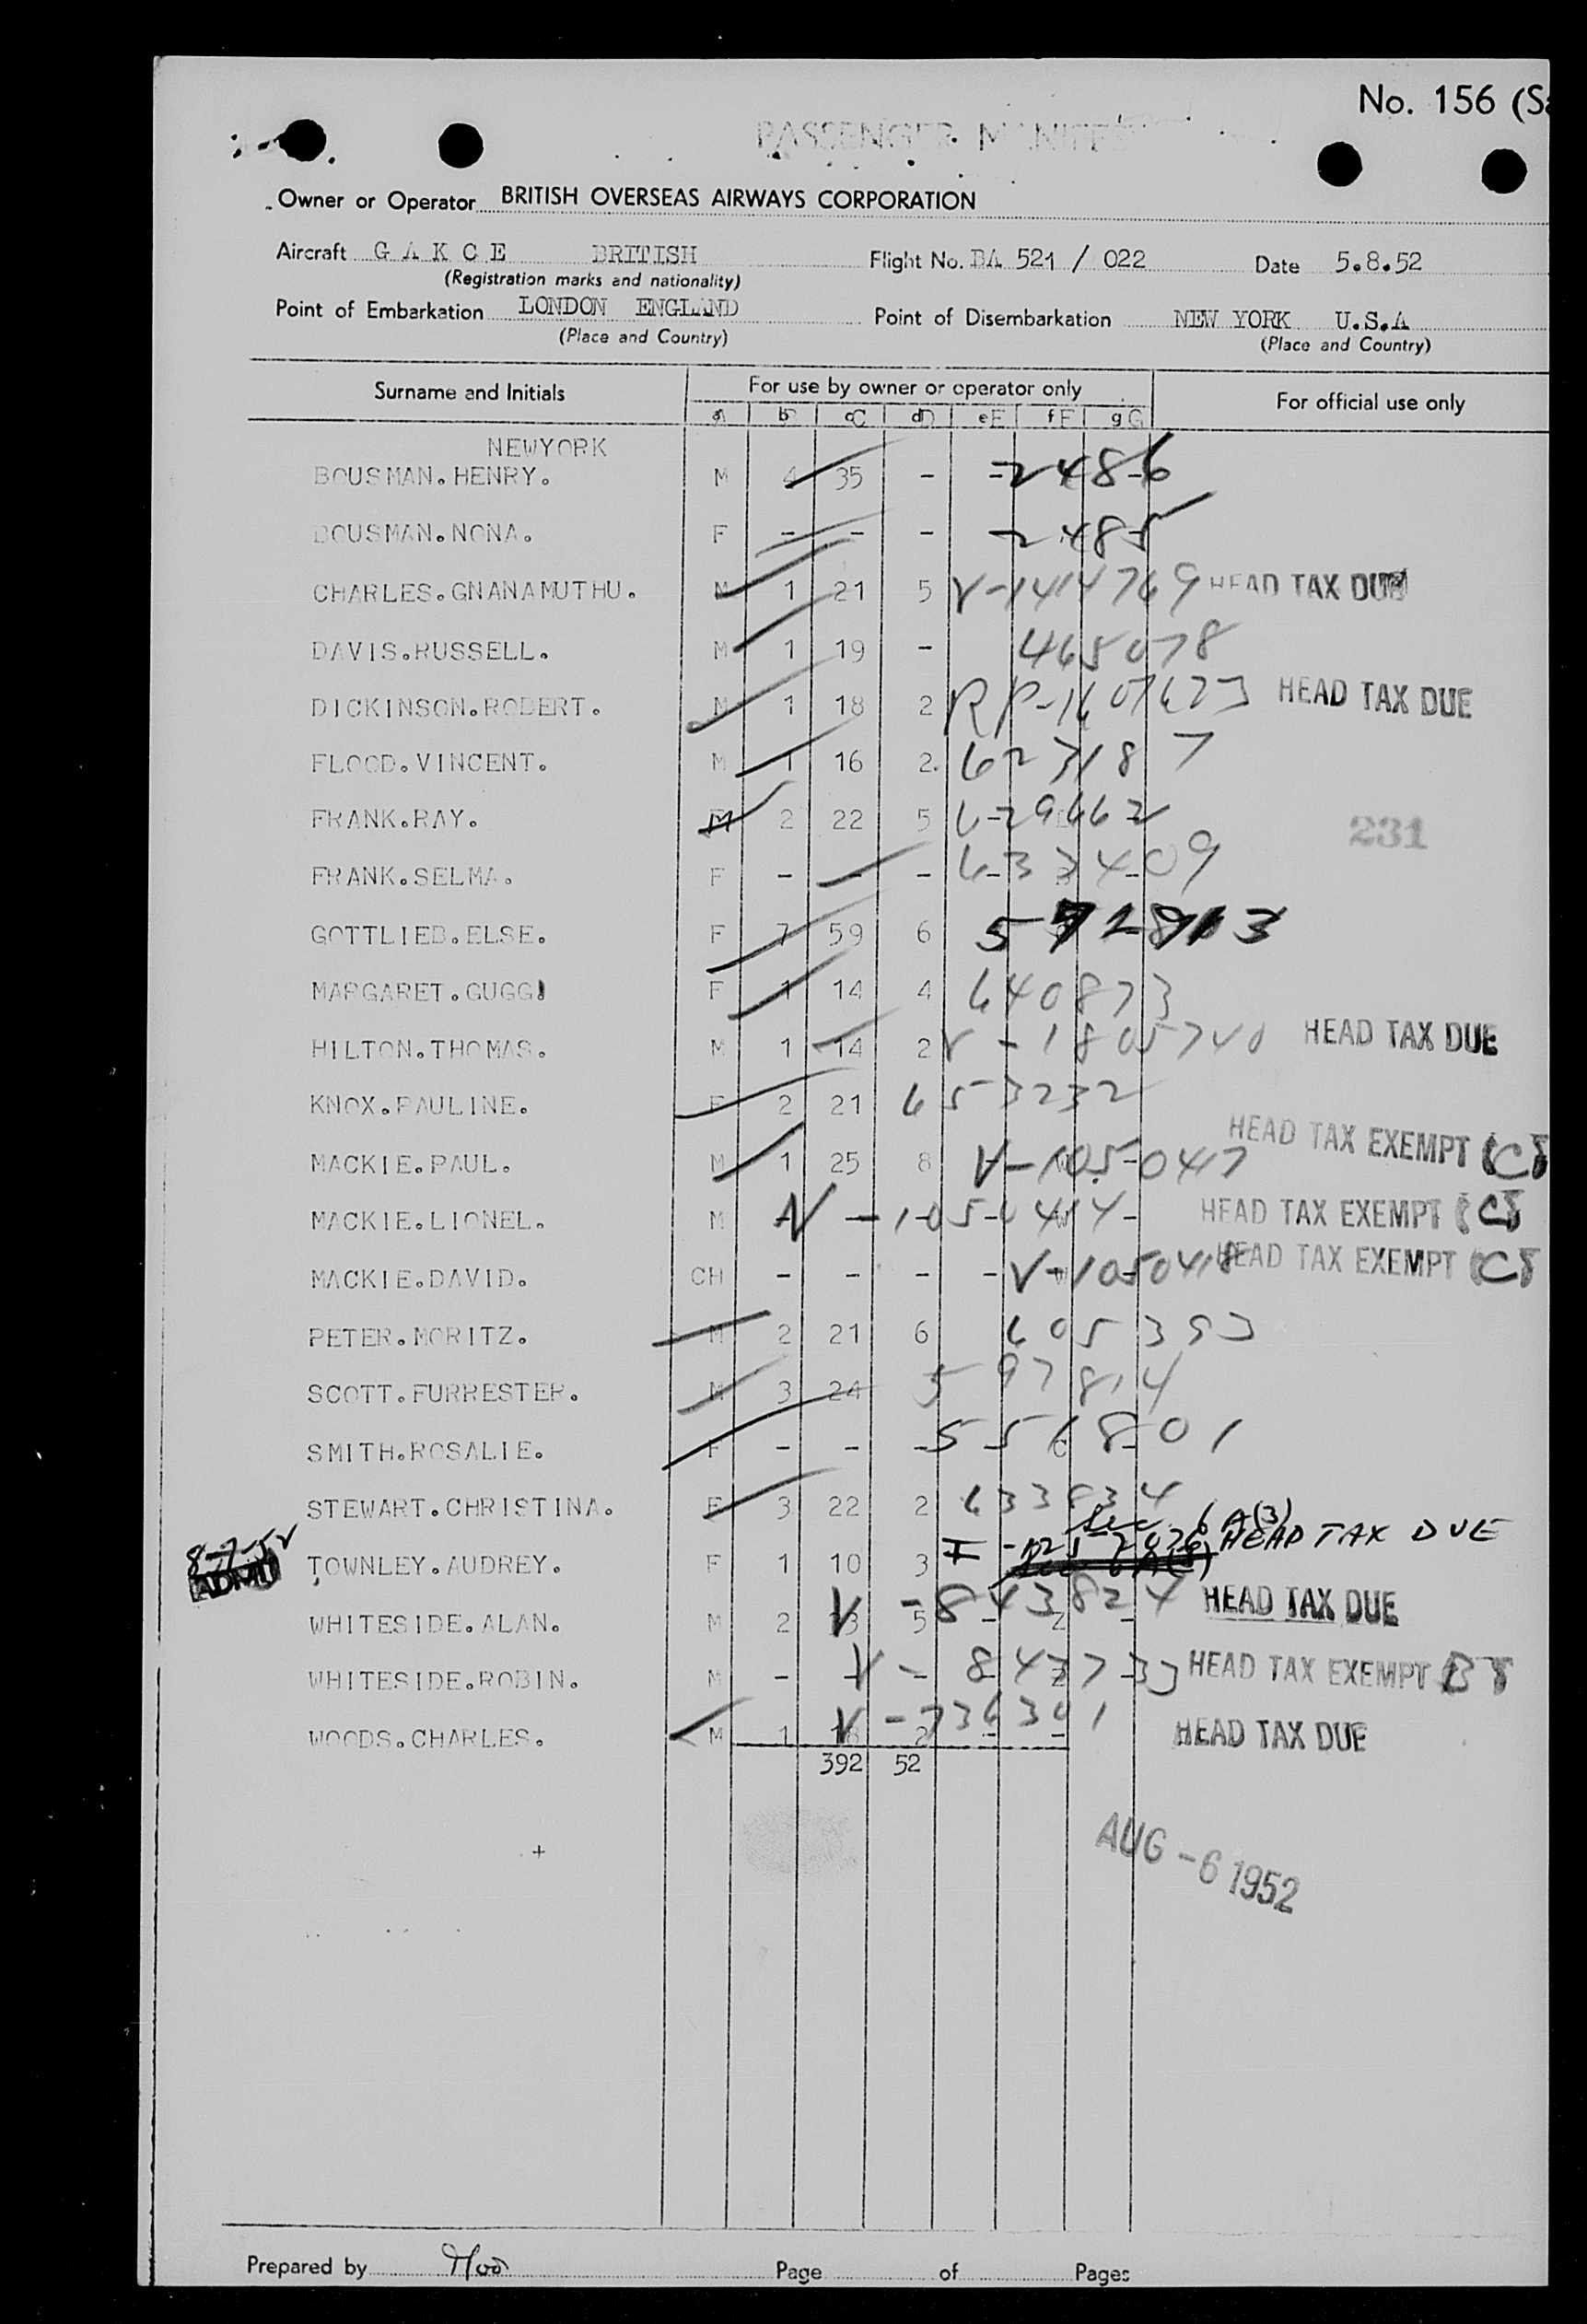 No. 156 (Sa
PASSENGER MANIFE
Owner or Operator BRITISH OVERSEAS AIRWAYS CORPORATION
Aircraft G A K C E BRITISH Flight No. BA 521 / 022 Date 5.8.52
(Registration marks and nationality)
Point of Embarkation LONDON ENGLAND Point of Disembarkation NEW YORK U.S.A
(Place and Country) (Place and Country)
Surname and Initials For use by owner or operator only For official use only
a b c d e f g
A B C D E F G
NEWYORK
BOUSMAN.HENRY. M 4 35 - - 2486
BOUSMAN.NONA. F - - - - 2485
CHARLES.GNANAMUTHU. M 1 21 5 V-1414769 HEAD TAX DUE
DAVIS.RUSSELL. M 1 19 - 465078
DICKINSON.ROBERT. M 1 18 2 RP-1607623 HEAD TAX DUE
FLOOD.VINCENT. M 1 16 2. 623187
FRANK.RAY. M 2 22 5 629662
231
FRANK.SELMA. F - - - 633409
GOTTLIEB.ELSE. F 7 59 6
MARGARET.GUGGI F 1 14 4 640873
HILTON.THOMAS. M 1 14 2 V-1805740 HEAD TAX DUE
KNOX.PAULINE. F 2 21 653232
MACKIE.PAUL. M 1 25 8 V-1050417 HEAD TAX EXEMPT
MACKIE.LIONEL. M V-1050414 HEAD TAX EXEMPT
MACKIE.DAVID. CH - - - - V-1050418 HEAD TAX EXEMPT
PETER.MORITZ. M 2 21 6 605393
SCOTT.FURRESTER. M 3 24 597814
SMITH.ROSALIE. F - - - 551801
STEWART.CHRISTINA. F 3 22 2 633834
Sec. 6 A(3)
8-7-52
ADMIT TOWNLEY.AUDREY. F 1 10 3 HEAD TAX DUE
WHITESIDE.ALAN. M 2 23 5 V-843824 HEAD TAX DUE
WHITESIDE.ROBIN. M - V-843733 HEAD TAX EXEMPT
WOODS.CHARLES. M 1 18 2 V-736301 HEAD TAX DUE
392 52
AUG -6 1952
Prepared by Page of Pages